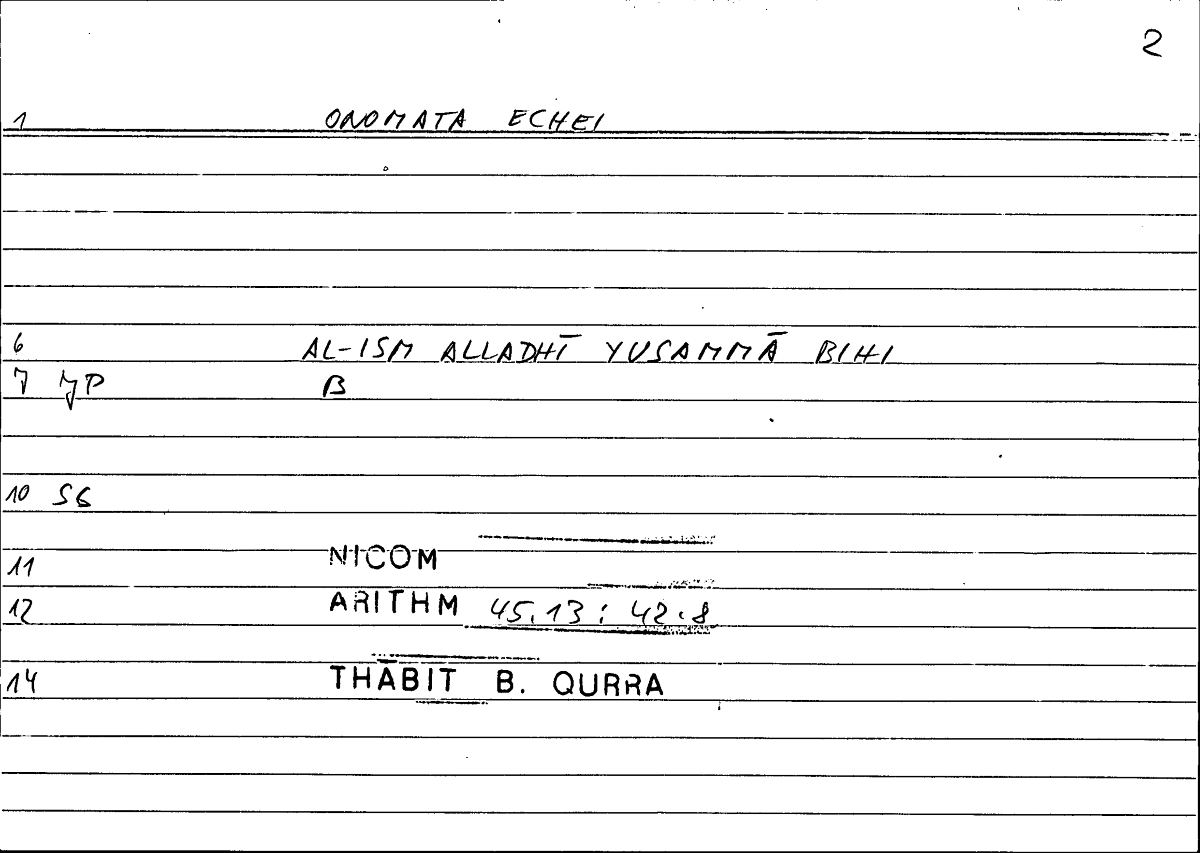 2
1 ONOMATA ECHEI
6 AL-ISM ALLADHĪ YUSAMMĀ BIHI
7 B
10 SG
11 NICOM
12 ARITHM 45.13 : 42.8
14 THĀBIT B. QURRA